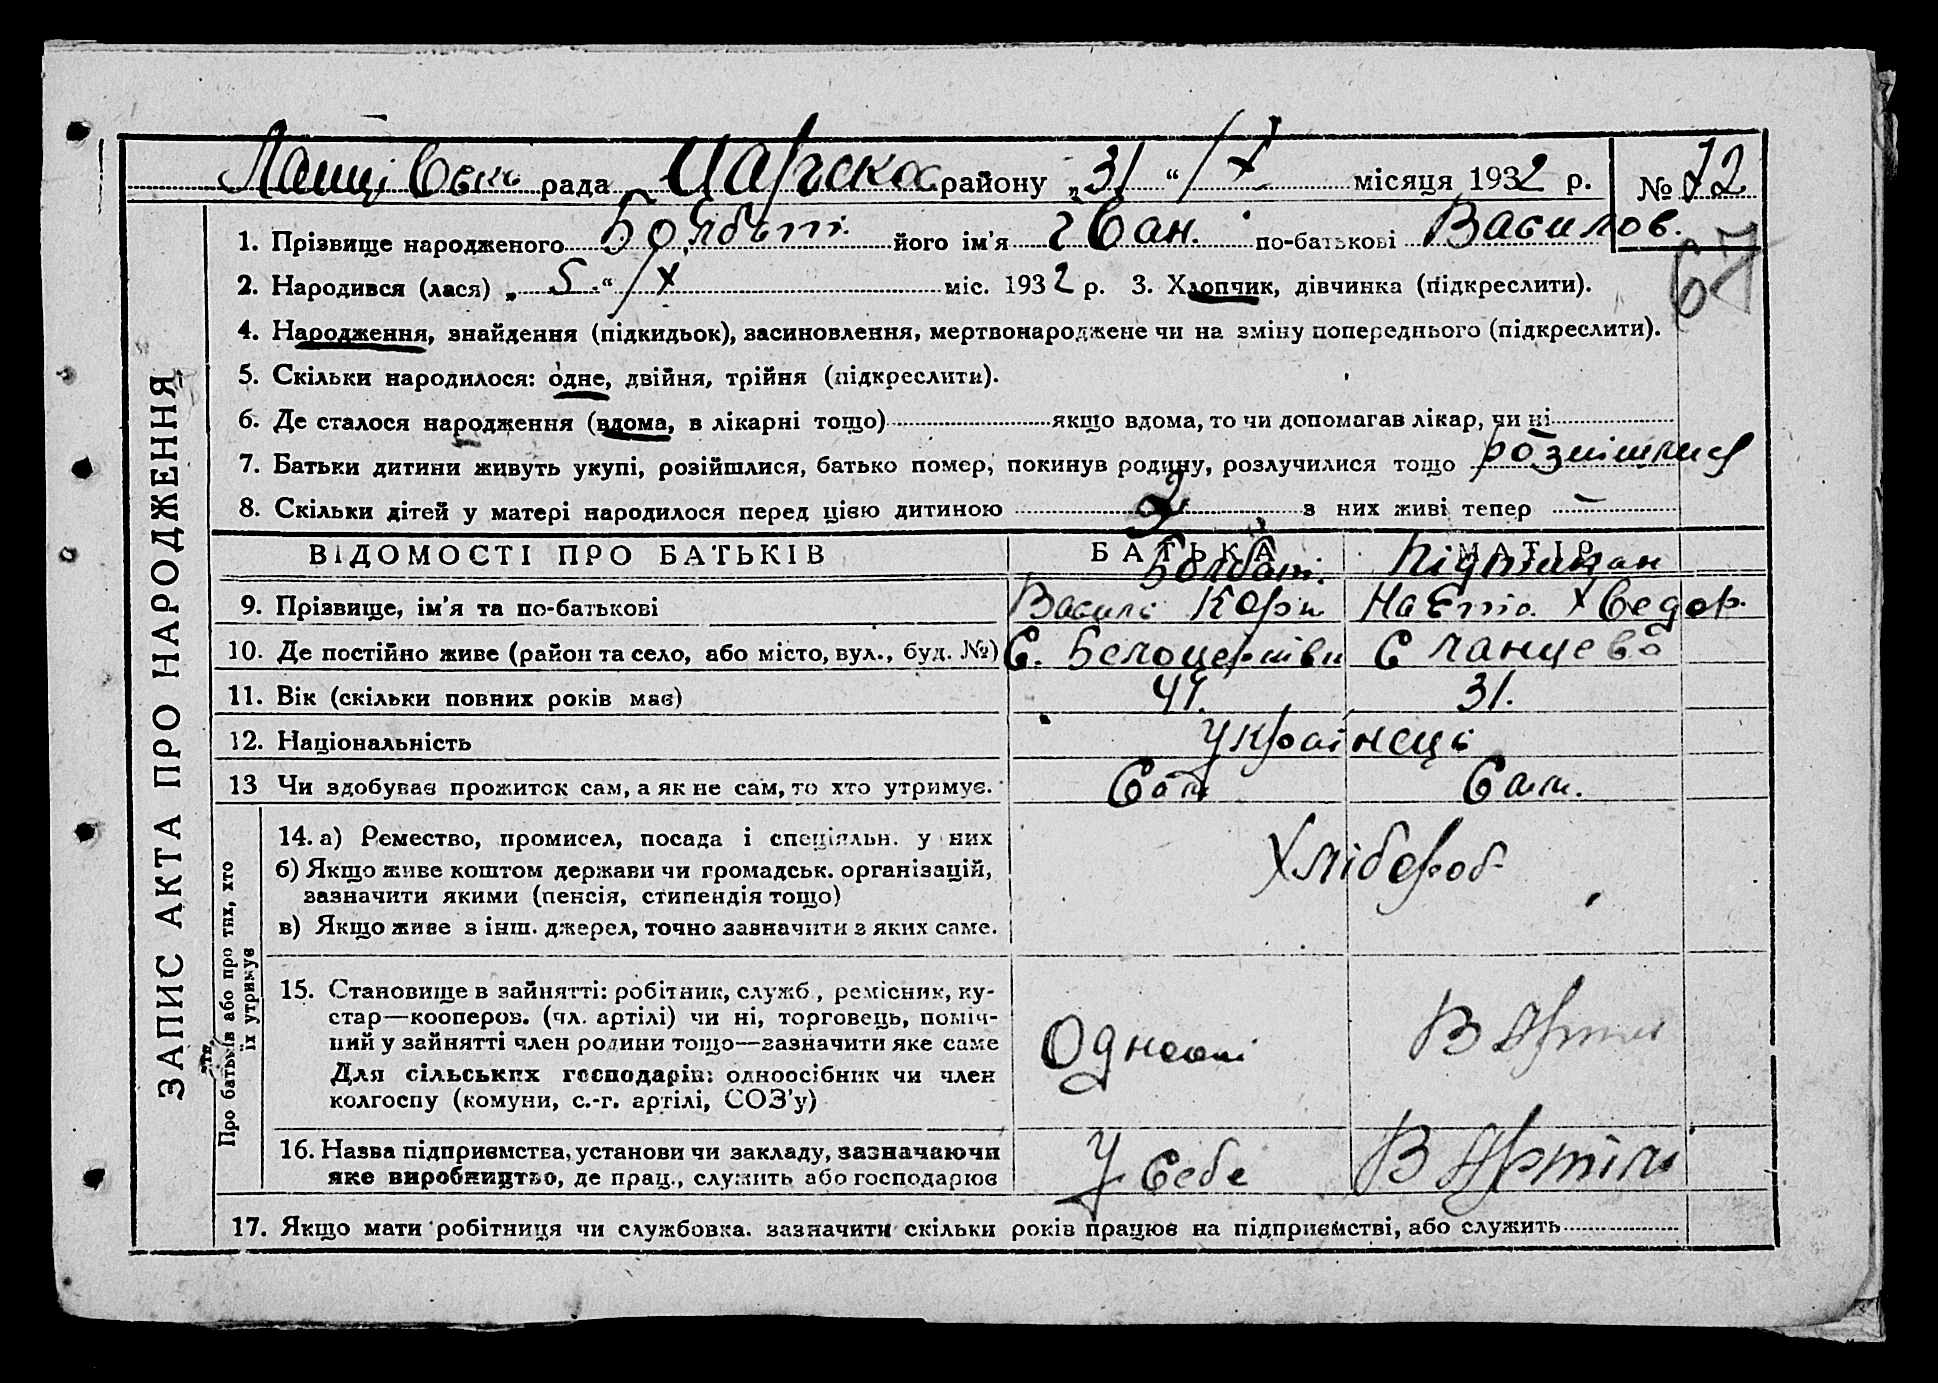 Ланцівськ рада Царськос району „31“ /X місяця 1932 р. № 72
67
1. Прізвище народженого Болбат його ім'я Іван. по-батькові Василов.
2. Народився (лася) „5“ /X міс. 1932 р. 3. Хлопчик, дівчинка (підкреслити).
4. Народження, знайдення (підкидьок), засиновлення, мертвонароджене чи на зміну попереднього (підкреслити).
5. Скільки народилося: одне, двійня, трійня (підкреслити).
6. Де сталося народження (вдома, в лікарні тощо) якщо вдома, то чи допомагав лікар, чи ні
7. Батьки дитини живуть укупі, розійшлися, батько помер, покинув родину, розлучилися тощо
8. Скільки дітей у матері народилося перед цією дитиною 2 з них живі тепер –
ВІДОМОСТІ ПРО БАТЬКІВ БАТЬКА МАТІР
9. Прізвище, ім'я та по-батькові Василь Хведор.
10. Де постійно живе (район та село, або місто, вул., буд. №) С. Белоцерківки С Ланцево
11. Вік (скільки повних років має) 41. 31.
12. Національність Українець
13 Чи здобуває прожиток сам, а як не сам, то хто утримує. Сам Сам.
14. а) Ремество, промисел, посада і спеціяльн. у них Хлібороб
б) Якщо живе коштом держави чи громадськ. організацій,
зазначити якими (пенсія, стипендія тощо)
в) Якщо живе з інш. джерел, точно зазначити з яких саме.
15. Становище в зайнятті: робітник, служб., ремісник, ку-
стар—кооперов. (чл. артілі) чи ні, торговець, поміч-
ний у зайнятті член родини тощо—зазначити яке саме
Для сільських господарів: одноосібник чи член
колгоспу (комуни, с.-г. артілі, СОЗ'у)
В Артілі
16. Назва підприємства, установи чи закладу, зазначаючи
яке виробництво, де прац., служить або господарює У Себе В Артілі
17. Якщо мати робітниця чи службовка. зазначити скільки років працює на підприємстві, або служить
ЗАПИС АКТА ПРО НАРОДЖЕННЯ
Про батьків або про тих, хто
їх утримує